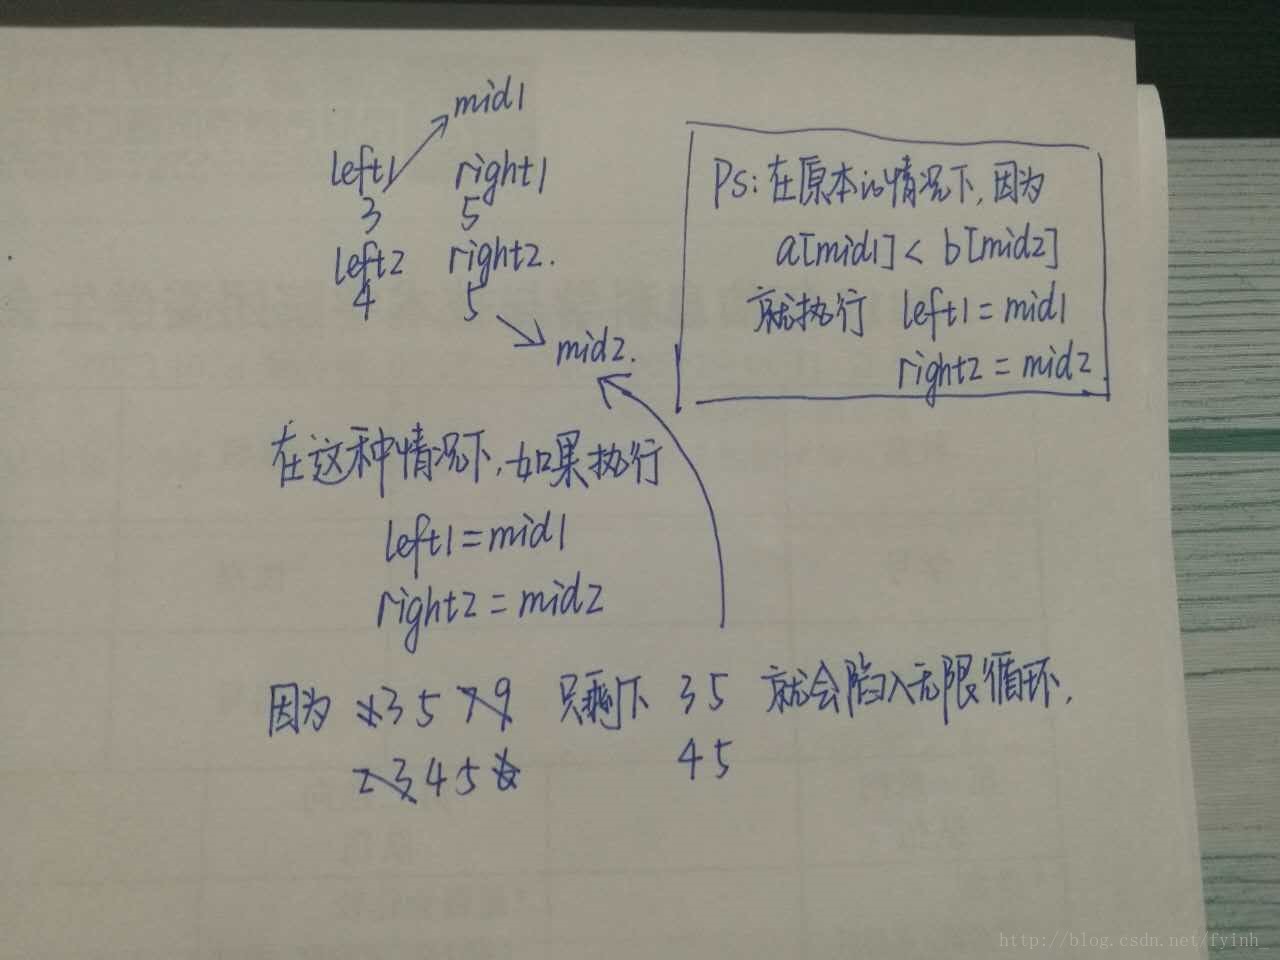 mid1
left1 right1
3 5
left2 right2.
4 5
mid2.
Ps:在原本的情况下,因为
a[mid1] < b[mid2]
就执行 left1 = mid1
right2 = mid2.
在这种情况下,如果执行
left1 = mid1
right2 = mid2
因为 1 3 5 7 9 只剩下 3 5 就会陷入无限循环,
2 3 4 5 6 4 5
http://blog.csdn.net/fyinh_